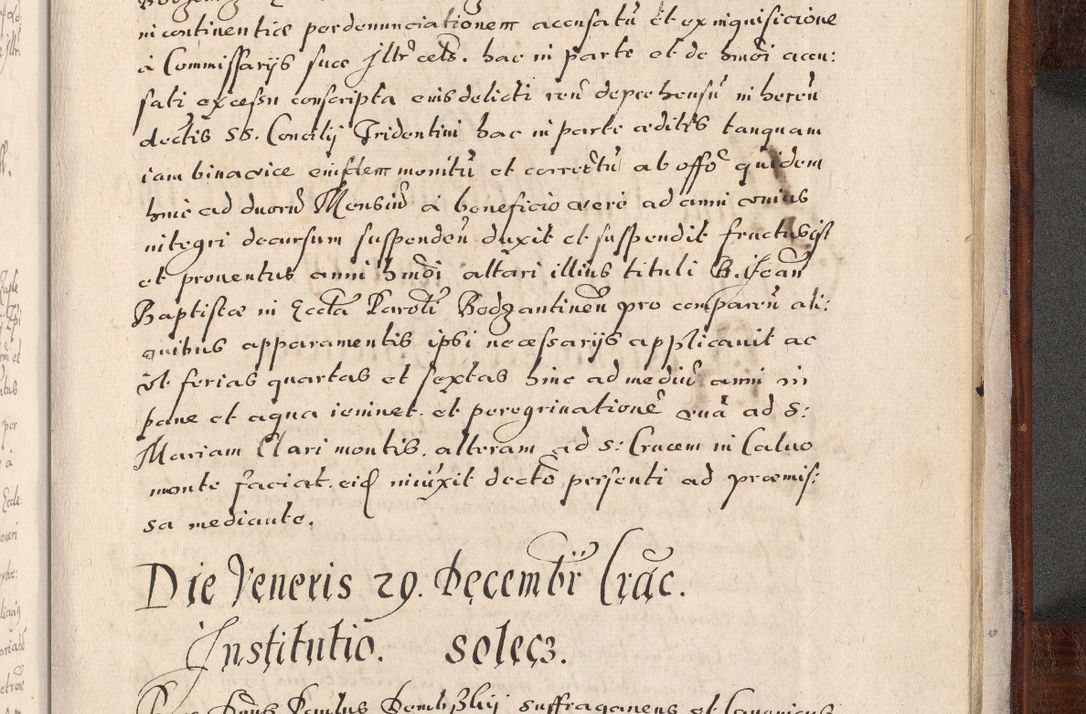 in continentiæ per denunciationem acusatū et ex inquisicione
à Commissarijs suæ Jllr̃ cels. hac in parte et de hmõi accu:
sati excessu conscripta eius delicti reū deprehensū in herēn
dectis SS. Concilij Tridentini hac in parte æditis tanquam
iam bina vice eiusdem monitū et correctū ab offõ quidem
hinc ad duorū Mensiū à beneficio verò ad anni vnius
integri decursum suspenden̄ duxit et suspendit fructusq̃
et prouentus anni hmõi altari illius tituli B. Joan̄
Baptistæ in Eccta Paroch Bodzantinen̄ pro comparen̄ ali:
quibus apparamentis ipsi necessarijs applicauit ac
vt ferias quartas et sextas hinc ad mediū anni in
pane et aqua ieiunet. et peregrinationē vnā ad S:
Mariam Clari montis. alteram ad S: Crucem in Caluo
monte faciat. eid iniūxit dectõ presenti ad præmis:
sa mediante.
Die Veneris 29. Decembr̃ Crac.
Institutio. Solecz.
Dnūs Paulus Dembskij suffraganeus et Canonicus